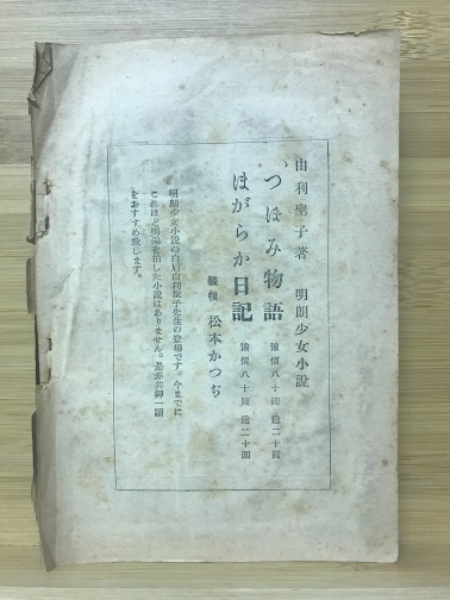 由利聖子著 明朗少女小説
つぼみ物語 豫價八十圓 送二十圓
ほがらか日記 豫價八十圓 送二十圓
裝幀 松本かつぢ
明朗少女小説の白眉由利聖子先生の登場です。今までに
これほど爆笑を捲した小説はありません。是非共御一讀
をおすすめ致します。